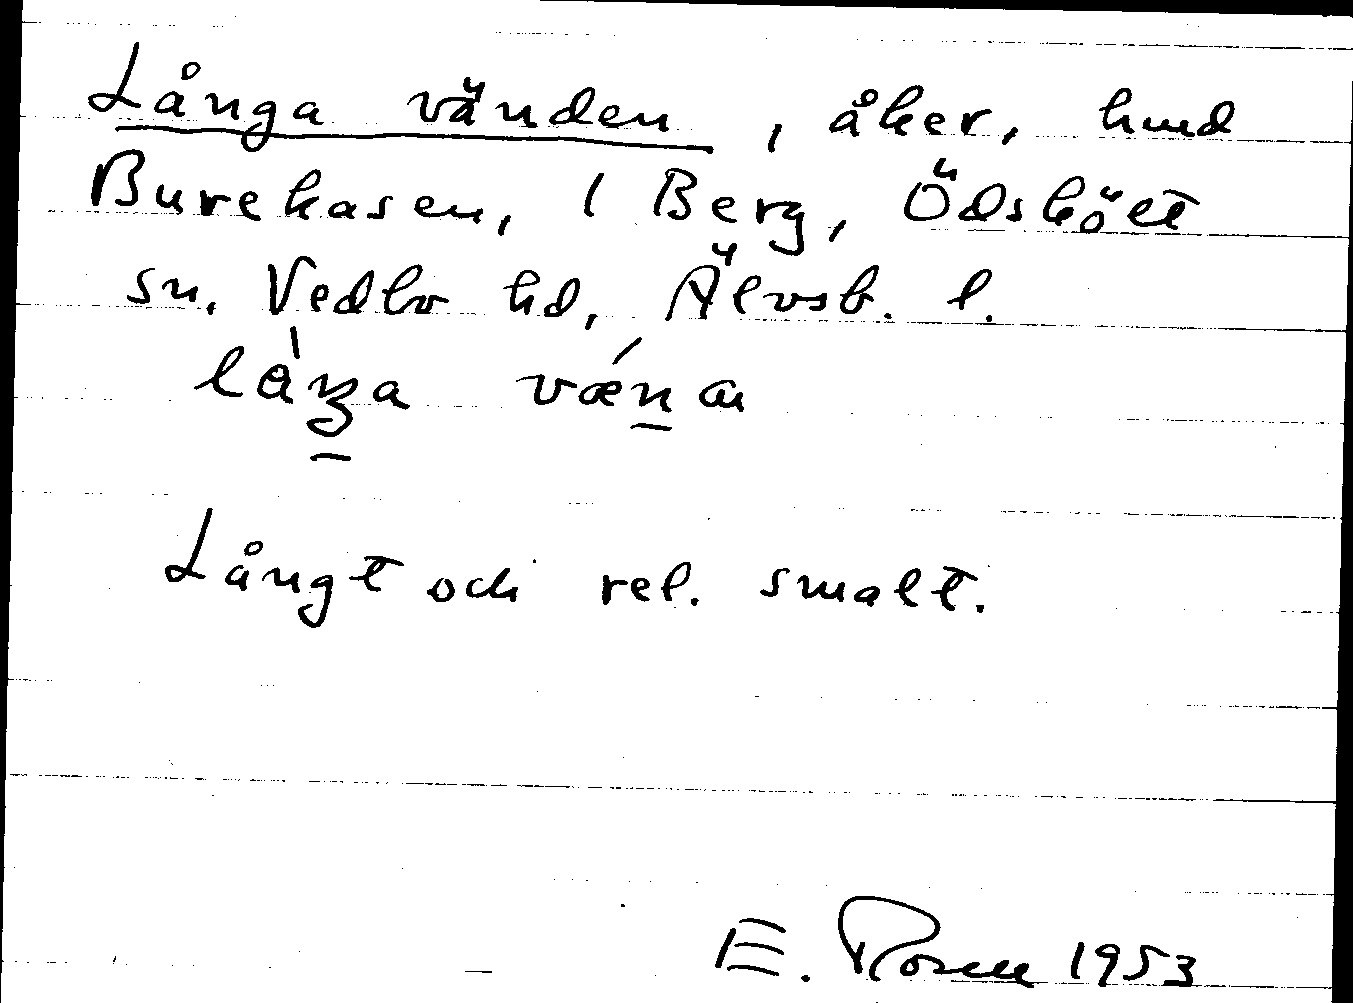 Långa vänden, åker, hmd
Burekasen, 1 Berg, Ödskölt
sn. Vedbo hd, Älvsb. l.
Långt och rel. smalt.
E. Rosell 1953